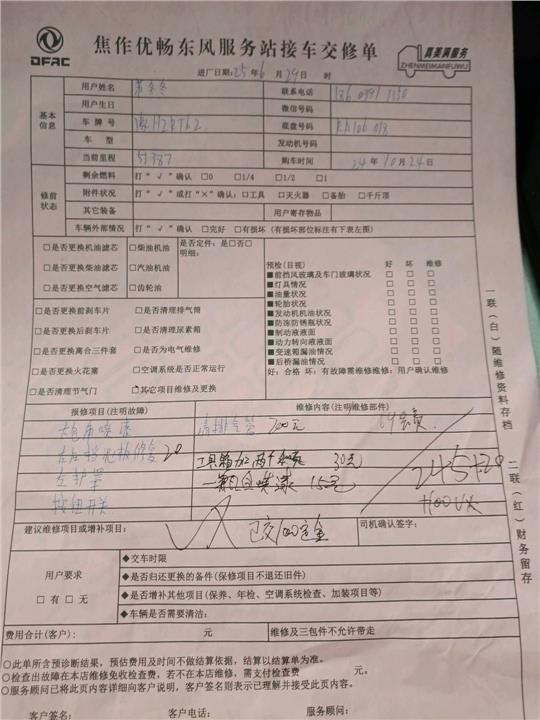 DFAC
焦作优畅东风服务站接车交修单
真美满服务
ZHENMEIMANFUWU
进厂日期:25年6月29日 时
基本信息
用户姓名 联系电话
用户生日 微信号码
车牌号 底盘号码
车型 发动机号码
当前里程 51387 购车时间 24年10月24日
修前状态
剩余燃料 打“√”确认 □0 □1/4 □1/2 □1
附件状况 打“√”或打“×”确认:□工具 □灭火器 □备胎 □千斤顶
其它装备 用户寄存物品
车辆外部情况 打“√”确认 □完好 □有损坏(有损坏部位标注有下表左图)
□是否更换机油滤芯 □柴油机油 是否定件:是□否□
明细:
□是否更换柴油滤芯 □汽油机油
□是否更换空气滤芯 □齿轮油
预检(目视) 好 坏 维修
■前挡风玻璃及车门玻璃状况 □ □ □
■灯具情况 □ □ □
■油量状况 □ □ □
■轮胎状况 □ □ □
■发动机机油状况 □ □ □
■防冻防锈瓶状况 □ □ □
■制动液液面 □ □ □
■动力转向液液面 □ □ □
■变速箱漏油情况 □ □ □
■后桥漏油情况 □ □ □
好:合格 坏:有故障需维修维修:用户确认维修
□是否更换前刹车片 □是否清理排气筒
□是否更换后刹车片 □是否清理尿素箱
□是否更换离合三件套 □是否为电气维修
□是否更换火花塞 □空调系统是否正常运行
□是否清理节气门 □其它项目维修及更换
报修项目(注明故障) 维修内容(注明维修部件)
清排气管 200元
20
工具箱加两个 30元
喷漆 15元
2451+20
建议维修项目或增补项目: 已交 定金 司机确认签字:
用户要求
□有 □无
◆交车时限
◆是否归还更换的备件(保修项目不退还旧件)
◆是否增补其他项目(保养、年检、空调系统检查、加装项目等)
◆车辆是否需要清洁:
费用合计(客户): 元 维修及三包件不允许带走
○此单所含预诊断结果,预估费用及时间不做结算依据,结算以结算单为准。
○检查出故障在本店维修免收检查费,若不在本店维修,需支付检查费 元。
○服务顾问已将此页内容详细向客户说明,客户签名则表示已理解并接受此页内容。
客户签名: 客户电话: 服务顾问:
一联(白)随维修资料存档
二联(红)财务留存